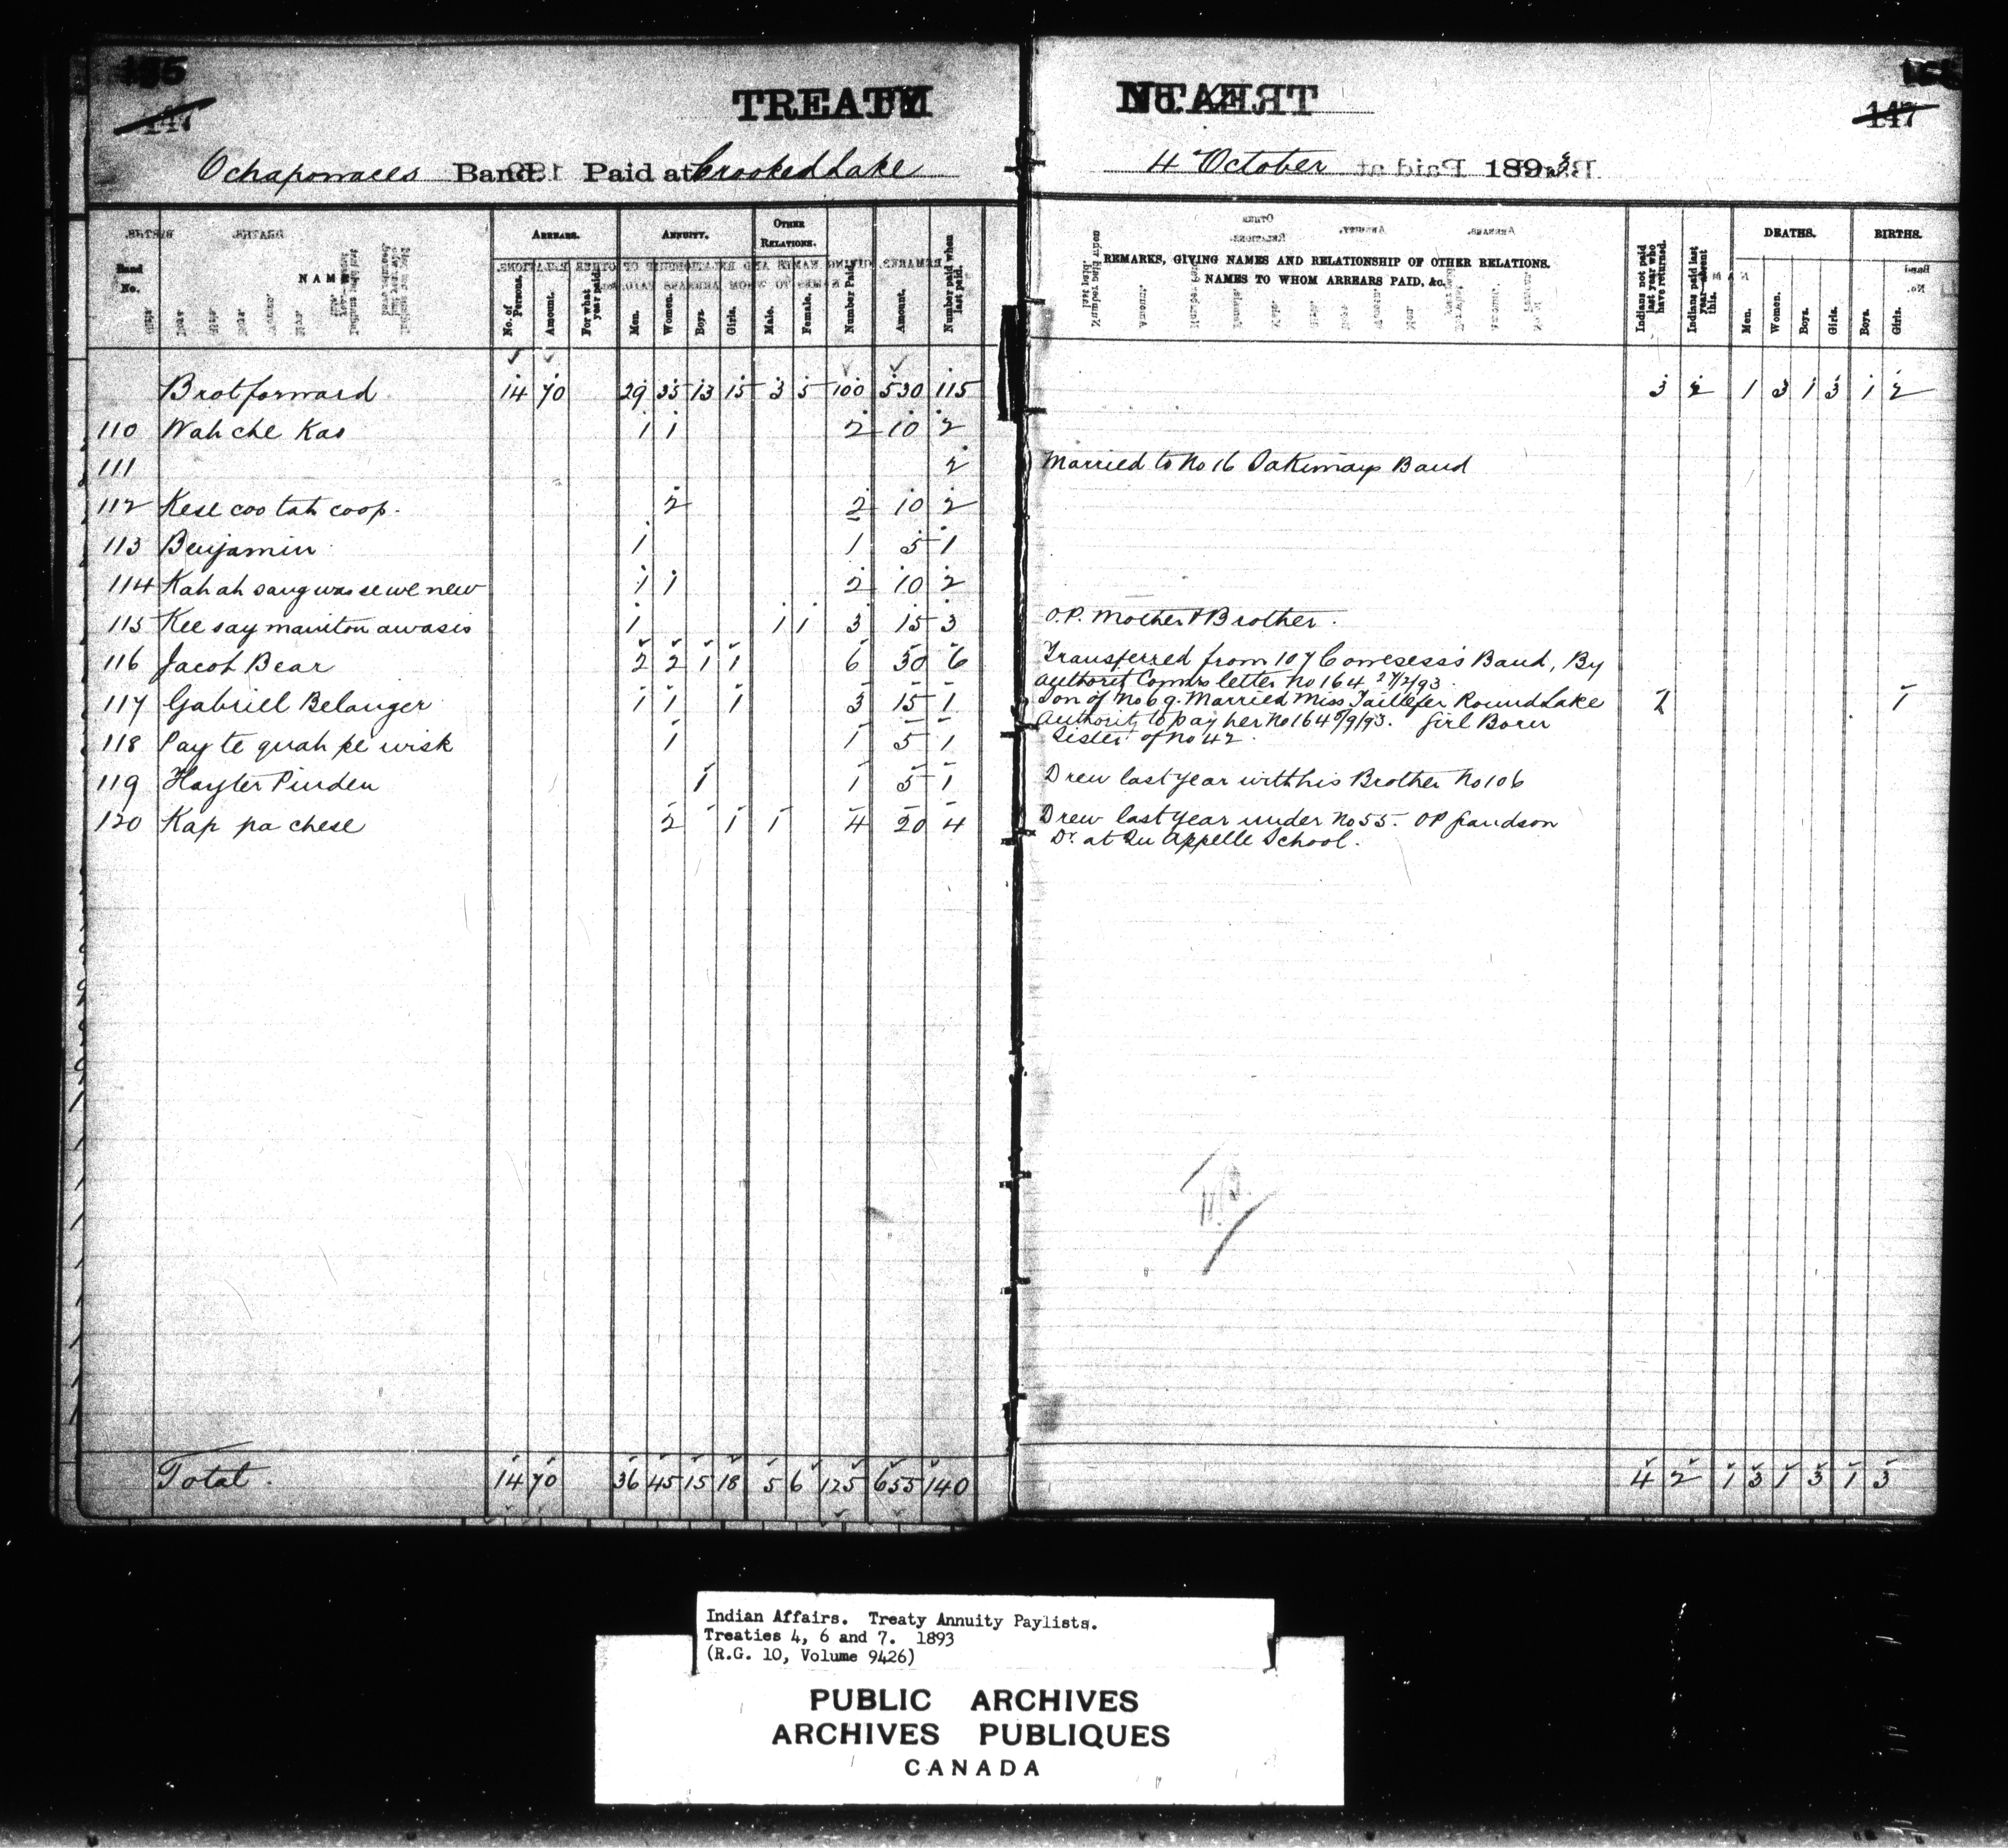 147
147
TREATY
Ochapowaces Band. Paid at Crooked Lake
4 October 1893
Band No.
NAME
ARREARS.
No. of Persons.
Amount.
For what year paid.
ANNUITY.
Men.
Women.
Boys.
Girls.
OTHER RELATIONS.
Male.
Female.
Number Paid.
Amount.
Number paid when last paid.
REMARKS, GIVING NAMES AND RELATIONSHIP OF OTHER RELATIONS.
NAMES TO WHOM ARREARS PAID, &c.
Indians not paid last year who have returned.
Indians paid last year absent this.
DEATHS.
Men.
Women.
Boys.
Girls.
BIRTHS.
Boys.
Girls.
Brot forward 14 70 29 35 13 15 3 5 100 530 115 3 2 1 3 1 3 1 2
110 Wah che Kas 1 1 2 10 2
111 2 Married to No 16 Sakimays Band
112 Kese coo tah coop. 2 2 10 2
113 Benjamin 1 1 5 1
114 Kah ah saug was se we new 1 1 2 10 2
115 Kee say maniton awasis 1 1 1 3 15 3 O.P. Mother & Brother.
116 Jacob Bear 2 2 1 1 6 30 6 Transferred from 107 Cowesess's Band, By
Authority Comrs letter No 164 27/2/93
117 Gabriel Belanger 1 1 1 3 15 1 Son of No 69. Married Miss Taillefer Round Lake 1 1
Authority to pay her No 164 5/9/93. Girl Born
118 Pay te quah pe wisk 1 1 5 1 Sister of No 42.
119 Hayter Pinden 1 1 5 1 Drew last year with his Brother No 106
120 Kap pa chese 2 1 1 4 20 4 Drew last year under No 55. OP Grandson
Dr. at Qu Appelle School.
Total. 14 70 36 45 15 18 5 6 125 655 140 4 2 1 3 1 3 1 3
Indian Affairs. Treaty Annuity Paylists.
Treaties 4, 6 and 7. 1893
(R.G. 10, Volume 9426)
PUBLIC ARCHIVES
ARCHIVES PUBLIQUES
CANADA